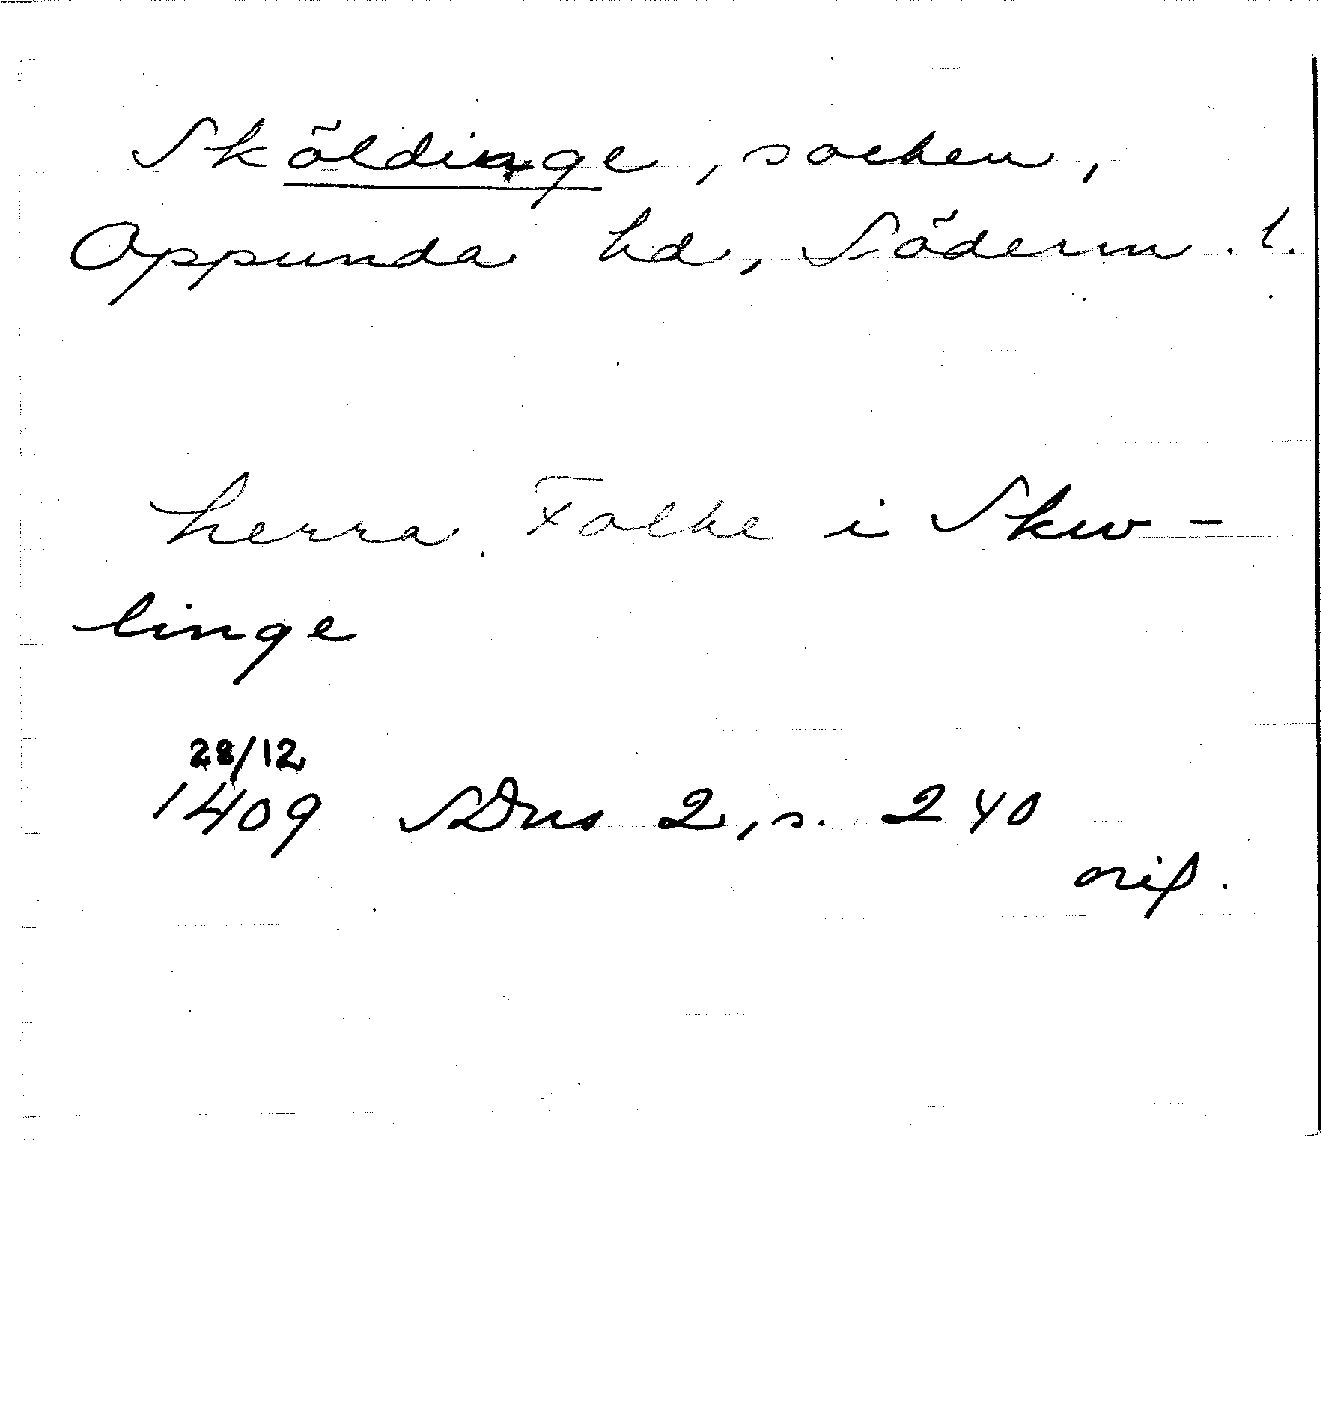 Sköldinge, socken,
Oppunda hd, Söderm. l.
herra Folke i Skw-
linge
28/12
1409 SDns 2, s. 240
orig.